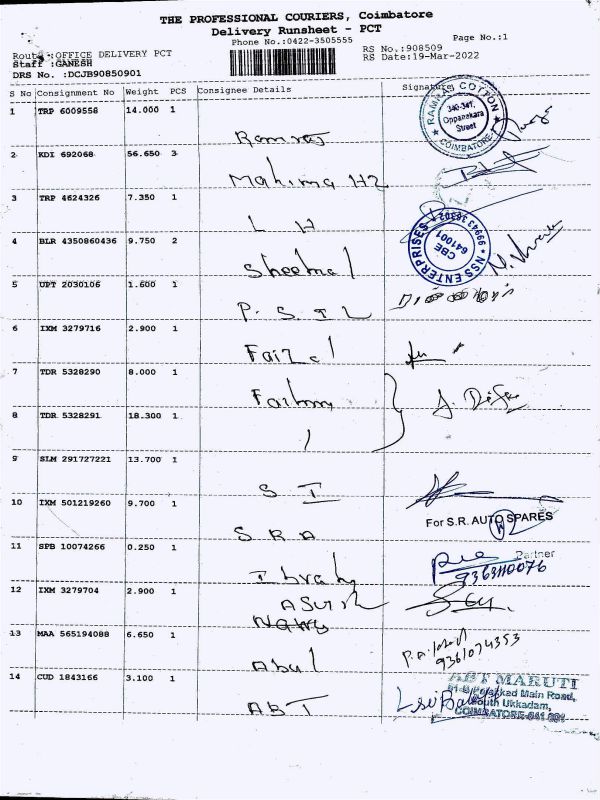 THE PROFESSIONAL COURIERS, Coimbatore
Delivery Runsheet - PCT
Phone No.:0422-3505555
Page No.:1
Route :OFFICE DELIVERY PCT
RS No.:908509
Staff :GANESH
RS Date:19-Mar-2022
DRS No. :DCJB90850901
S No Consignment No Weight PCS Consignee Details Signature
1 TRP 6009558 14.000 1
RAMRAJ COTTON
340-341,
Oppanakara
Street
COIMBATORE-1
Ramraj
2 KDI 692068 56.650 3
Mahima H2
3 TRP 4624326 7.350 1
L H
4 BLR 4350860436 9.750 2
NSS ENTERPRISES
99943 38302
CBE
641001
Sheetal
5 UPT 2030106 1.600 1
P. S. I L
6 IXM 3279716 2.900 1
Faizal
7 TDR 5328290 8.000 1
Fathima
8 TDR 5328291 18.300 1
9 SLM 291727221 13.700 1
S I
10 IXM 501219260 9.700 1
For S.R. AUTO SPARES
S R A
11 SPB 10074266 0.250 1
Partner
9363110076
Ibrahi
12 IXM 3279704 2.900 1
Asurish
Nawy
13 MAA 565194088 6.650 1
9361074353
Abul
14 CUD 1843166 3.100 1
ABT MARUTI
Palakkad Main Road,
South Ukkadam,
COIMBATORE-641 001
ABT